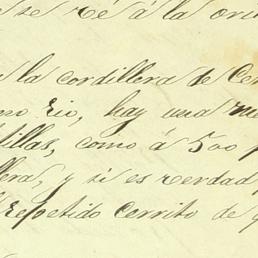 se vé á la ori
la cordillera de Ce
mo rio, hay una m
tillas, como á 500 p
llera, y si es verdad
repetido cerrito de q